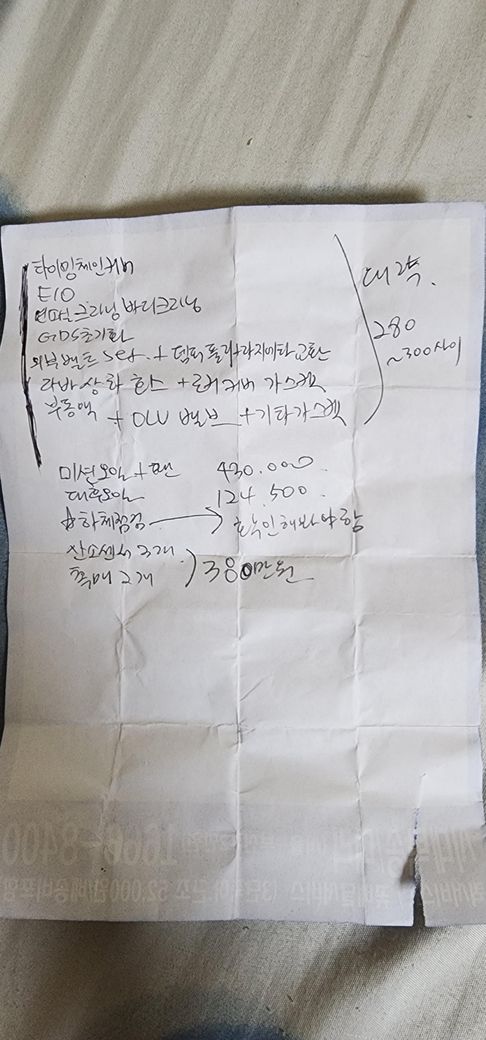 타이밍체인커버
E/O
인매니크리닝 바디크리닝
GDS초기화
외부벨트 set + 댐퍼풀리+라지에타교환
라바 상화 호스 + 로커커버 가스켓
부동액 + OLV 밸브 + 기타가스켓
대략.
280
~300사이
미션오일+팬 430.000
대후오일 124.500
☆하체점검 → 확인해봐야함
산소센서 3개
촉매 2개 ) 380만원